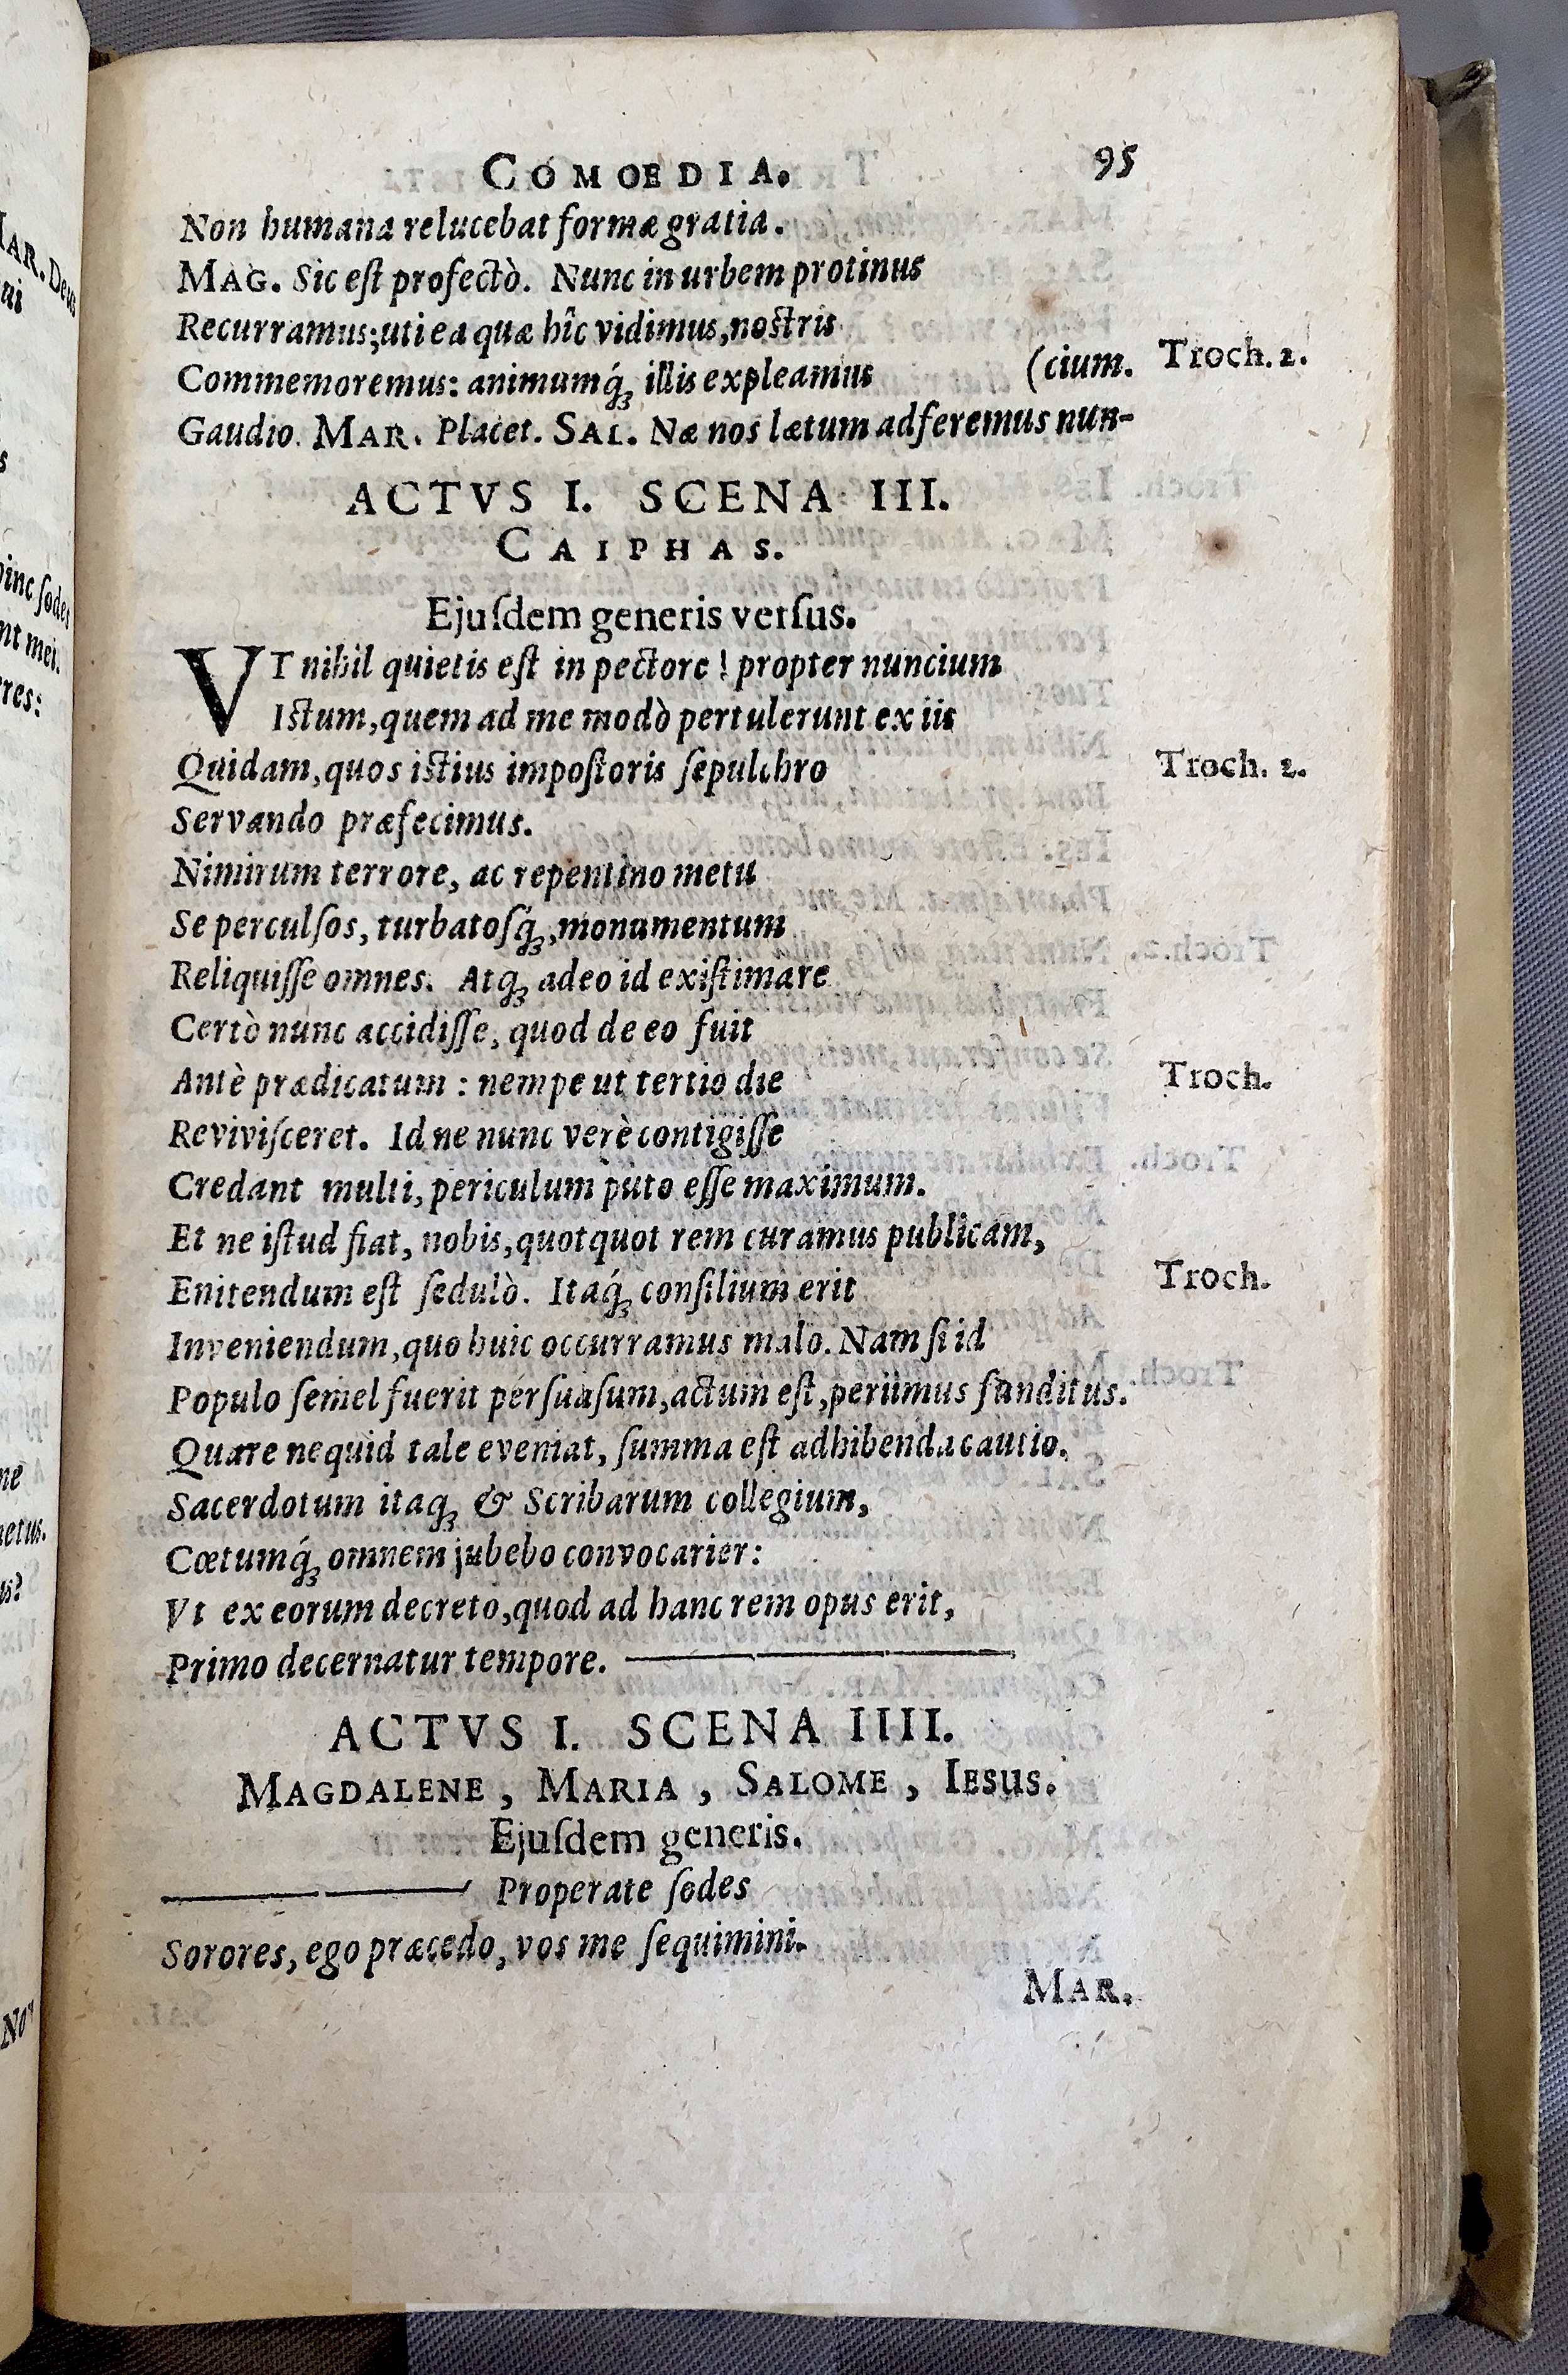 COMOEDIA. 95
Non humana relucebat formæ gratia.
MAG. Sic eſt profectò. Nunc in urbem protinus
Recurramus; uti ea quæ hîc vidimus, nostris
Commemoremus: animumq́ꝫ illis expleamus (cium. Troch. 2.
Gaudio. MAR. Placet. SAL. Næ nos lætum adferemus nun-
ACTVS I. SCENA III.
CAIPHAS.
Ejuſdem generis verſus.
VT nihil quietis eſt in pectore! propter nuncium
Istum, quem ad me modò pertulerunt ex iis
Quidam, quos istius impoſtoris ſepulchro Troch. 2.
Servando præfecimus.
Nimirum terrore, ac repentino metu
Se perculſos, turbatoſq́ꝫ, monumentum
Reliquiſſe omnes. Atqꝫ adeo id exiſtimare
Certò nunc accidiſſe, quod de eo fuit
Antè prædicatum: nempe ut tertio die Troch.
Reviviſceret. Id ne nunc verè contigiſſe
Credant multi, periculum puto eſſe maximum.
Et ne iſtud fiat, nobis, quotquot rem curamus publicam,
Enitendum eſt ſedulò. Itaq́ꝫ conſilium erit Troch.
Inveniendum, quo huic occurramus malo. Nam ſi id
Populo ſemel fuerit perſuaſum, actum eſt, periimus funditus.
Quare nequid tale eveniat, ſumma eſt adhibenda cautio.
Sacerdotum itaqꝫ & Scribarum collegium,
Cœtumq́ꝫ omnem jubebo convocarier:
Vt ex eorum decreto, quod ad hanc rem opus erit,
Primo decernatur tempore. ———
ACTVS I. SCENA IIII.
MAGDALENE, MARIA, SALOME, IESUS.
Ejuſdem generis.
——— Properate ſodes
Sorores, ego præcedo, vos me ſequimini.
MAR.